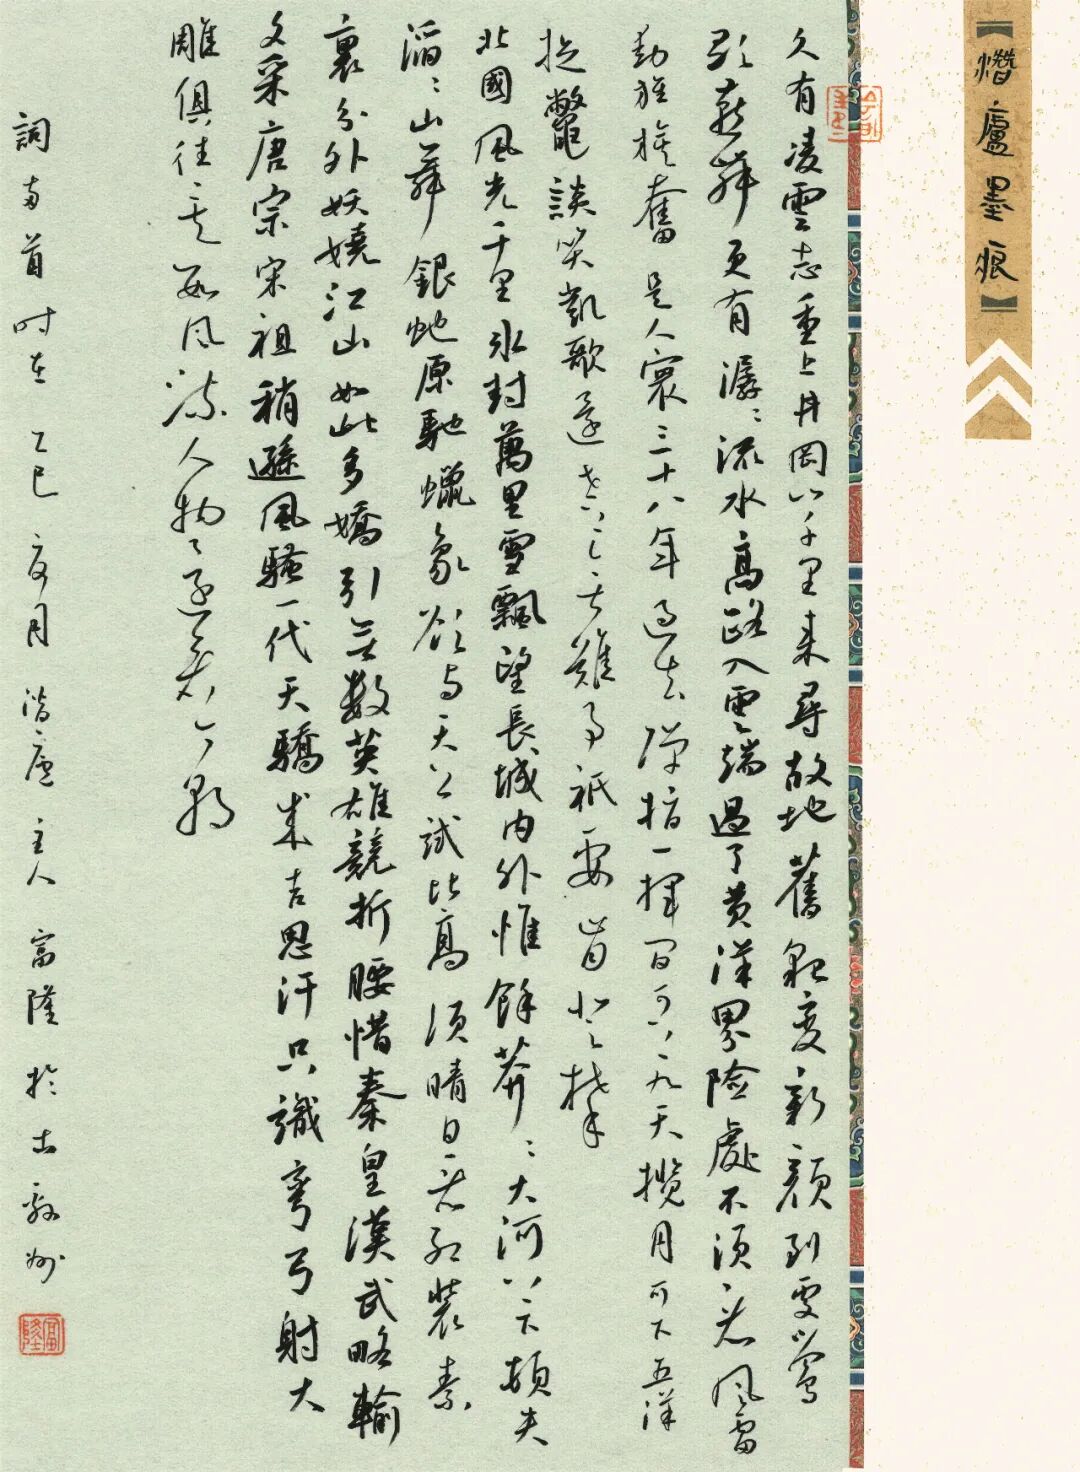 【熸廬墨痕】
久有凌雲志重上井岡山千里來尋故地舊貌變新顏到處鶯
歌燕舞更有潺〻流水高路入雲端過了黃洋界險處不須看風雷
動旌旗奮是人寰三十八年過去彈指一揮間可上九天攬月可下五洋
捉鱉談笑凱歌還世上無難事祇要肯登攀
北國風光千里冰封萬里雪飄望長城內外惟餘莽〻大河上下頓失
滔〻山舞銀蛇原馳蠟象欲與天公試比高須晴日看紅裝素
裹分外妖嬈江山如此多嬌引無數英雄競折腰惜秦皇漢武略輸
文采唐宗宋祖稍遜風騷一代天驕成吉思汗只識彎弓射大
雕俱往矣數風流人物〻還看今朝
詞兩首時在乙巳夏月潛廬主人富隆於古敘州
富隆